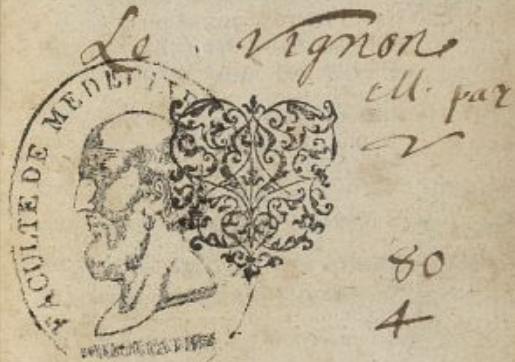 Le Vignon
M. par
FACULTE DE MEDECINE
80
4